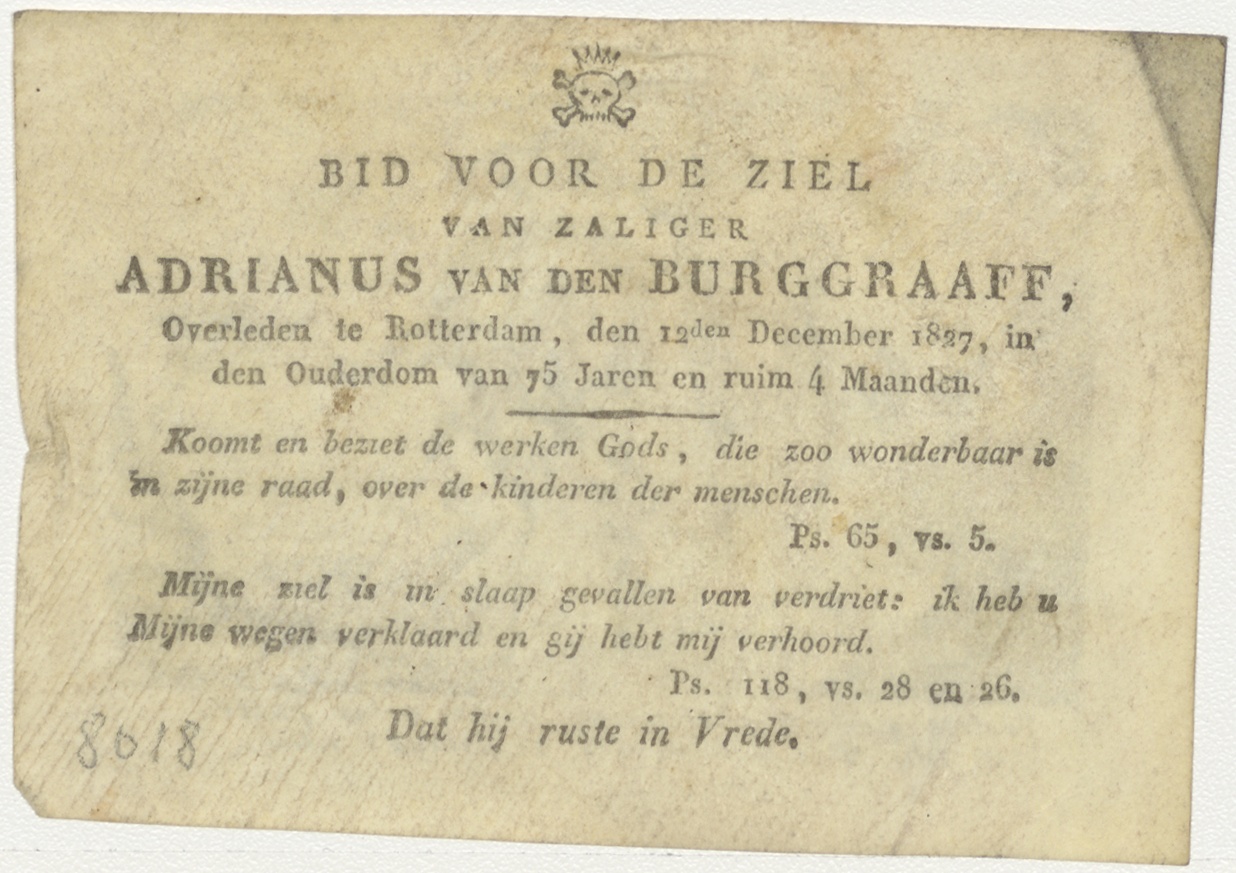 BID VOOR DE ZIEL
VAN ZALIGER
ADRIANUS VAN DEN BURGGRAAFF,
Overleden te Rotterdam, den 12den December 1827, in
den Ouderdom van 75 Jaren en ruim 4 Maanden.
Koomt en beziet de werken Gods, die zoo wonderbaar is
in zijne raad, over de kinderen der menschen.
Ps. 65, vs. 5.
Mijne ziel is in slaap gevallen van verdriet: ik heb u
Mijne wegen verklaard en gij hebt mij verhoord.
Ps. 118, vs. 28 en 26.
Dat hij ruste in Vrede.
8018